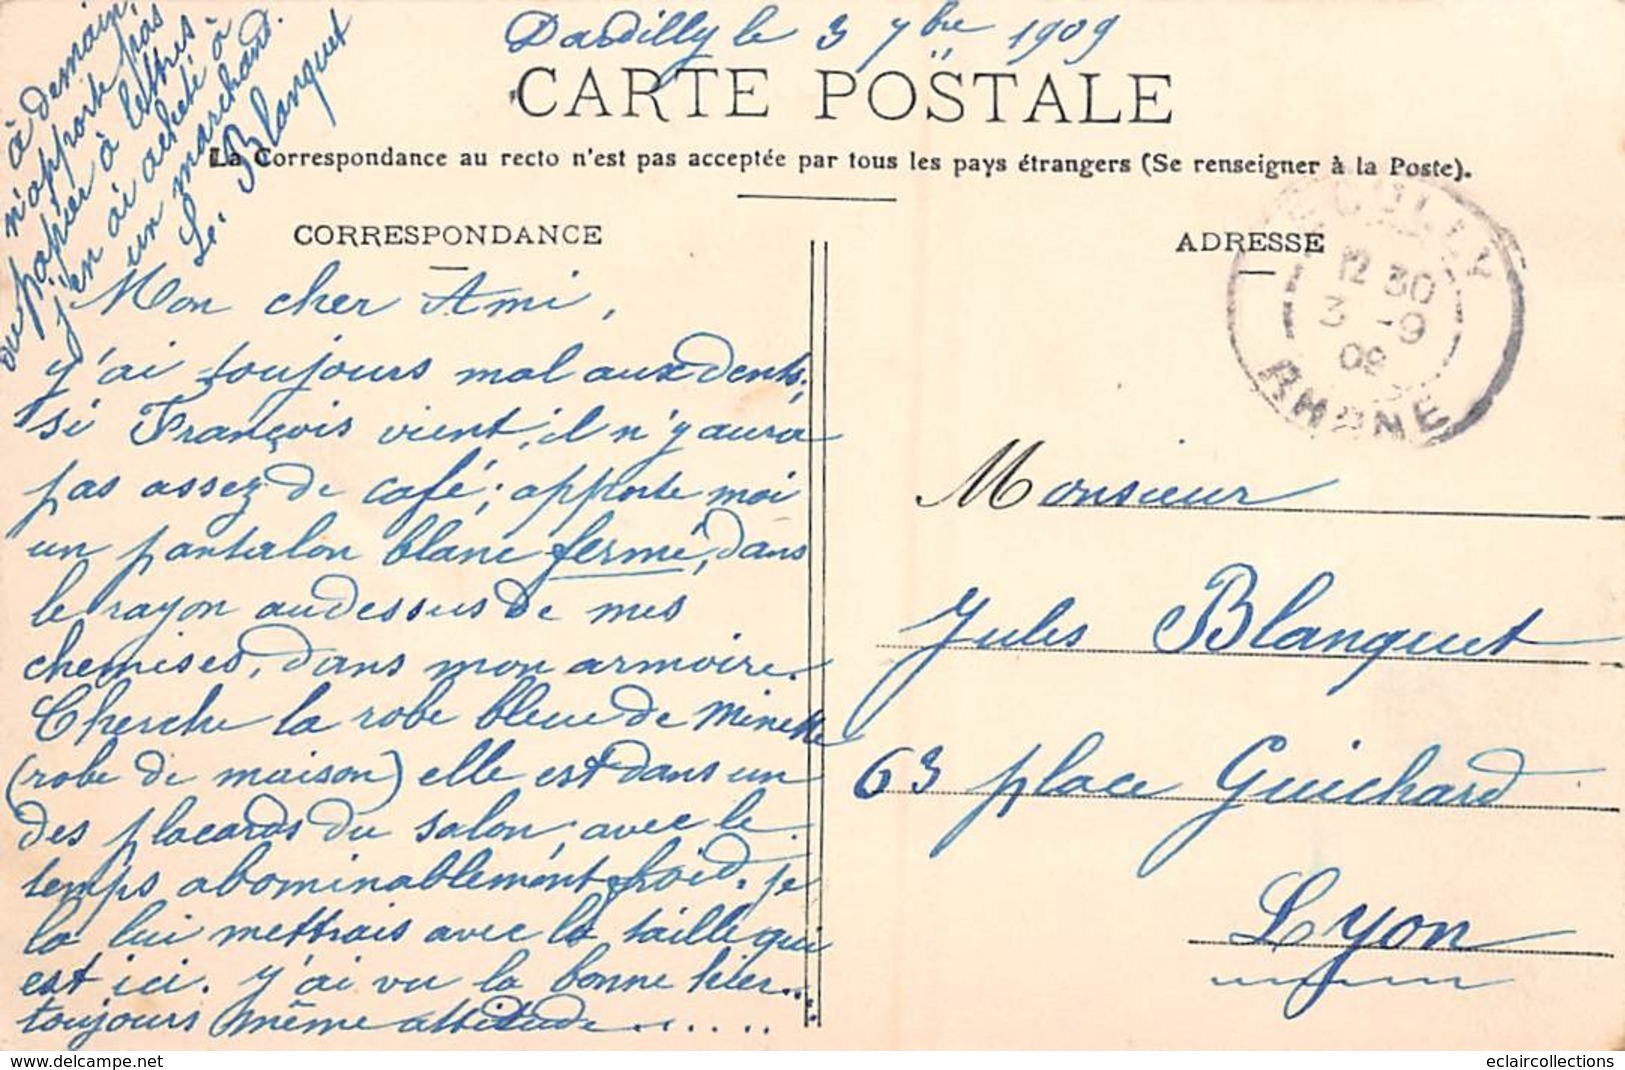 Dardilly le 3 7bre 1909
CARTE POSTALE
La Correspondance au recto n'est pas acceptée par tous les pays étrangers (Se renseigner à la Poste).
CORRESPONDANCE
Mon cher Ami,
J'ai toujours mal aux dents,
si François vient, il n'y aura
pas assez de café; apporte moi
un pantalon blanc fermé, dans
le rayon audessus de mes
chemises, dans mon armoire.
Cherche la robe bleue de Minette
(robe de maison) elle est dans un
des placards du salon, avec le
temps abominablement froid. je
la lui mettrais avec la taille qui
est ici. J'ai vu la bonne hier...
toujours même attitude......
à demain,
n'apporte pas
du papier à lettres
j'en ai acheté à
un marchand.
Le. Blanquet
ADRESSE
ECULLY
12 30
3 -9
09
RHONE
Monsieur
Jules Blanquet
63 place Guichard
Lyon
www.delcampe.net
eclaircollections